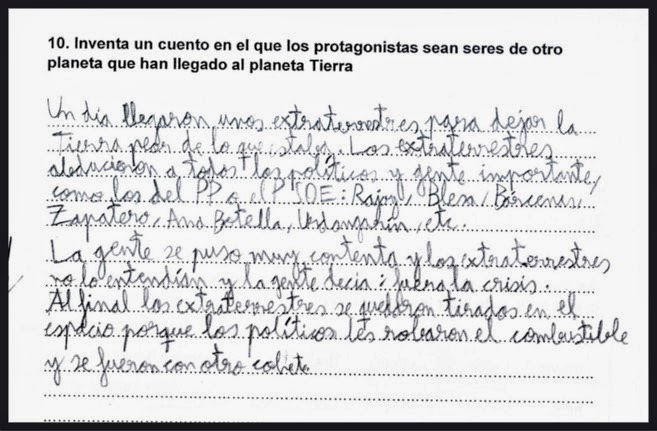 10. Inventa un cuento en el que los protagonistas sean seres de otro
planeta que han llegado al planeta Tierra
Un día llegaron unos extraterrestres para dejar la
Tierra peor de lo que estaba. Los extraterrestres
abducieron a todos los políticos y gente importante,
como los del PP o el PSOE: Rajoy, Blesa, Bárcenas,
Zapatero, Ana Botella, Urdangarín, etc.
La gente se puso muy contenta y los extraterrestres
no lo entendían y la gente decía: fuera la crisis.
Al final los extraterrestres se quedaron tirados en el
espacio porque los políticos les robaron el combustible
y se fueron con otro cohete.